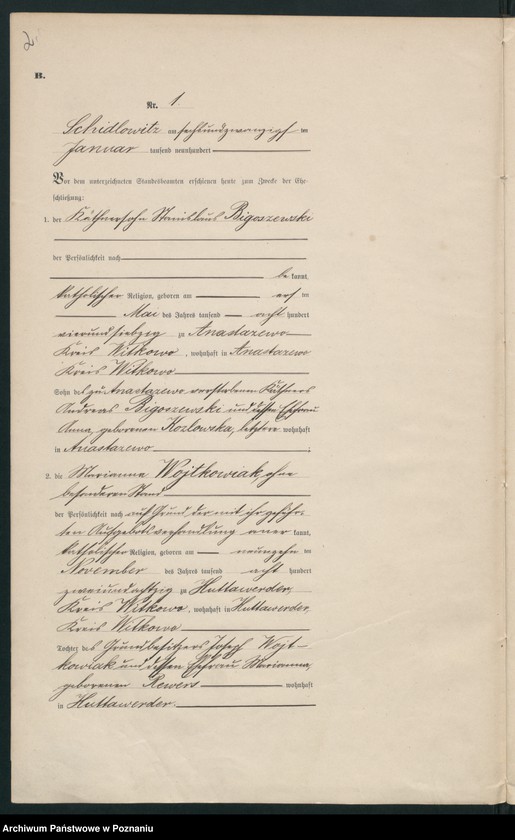 2
B.
Nr. 1
Schidlowitz am sechsundzwanzigsten
Januar tausend neunhundert
Vor dem unterzeichneten Standesbeamten erschienen heute zum Zwecke der Ehe-
schließung:
1. der Käthnersohn Stanislaus Bigoszewski
der Persönlichkeit nach
be kannt,
katholischer Religion, geboren am ersten
Mai des Jahres tausend acht hundert
vierundsiebzig zu Anastazewo
Kreis Witkowo, wohnhaft in Anastazewo
Kreis Witkowo
Sohn des zu Anastazewo verstorbenen Käthners
Andreas Bigoszewski und dessen Ehefrau
Anna, geborenen Kozlowska, letztere wohnhaft
in Anastazewo ;
2. die Marianna Wojtkowiak, ohne
besonderen Stand
der Persönlichkeit nach auf Grund der mit ihr geführ-
ten Aufgebotsverhandlung aner kannt,
katholischer Religion, geboren am neunzehn ten
November des Jahres tausend acht hundert
zweiundachtzig zu Huttawerder,
Kreis Witkowo, wohnhaft in Huttawerder,
Kreis Witkowo
Tochter des Grundbesitzers Joseph Wojt-
kowiak und dessen Ehefrau Marianna,
geborenen Rewers wohnhaft
in Huttawerder.
Archiwum Państwowe w Poznaniu